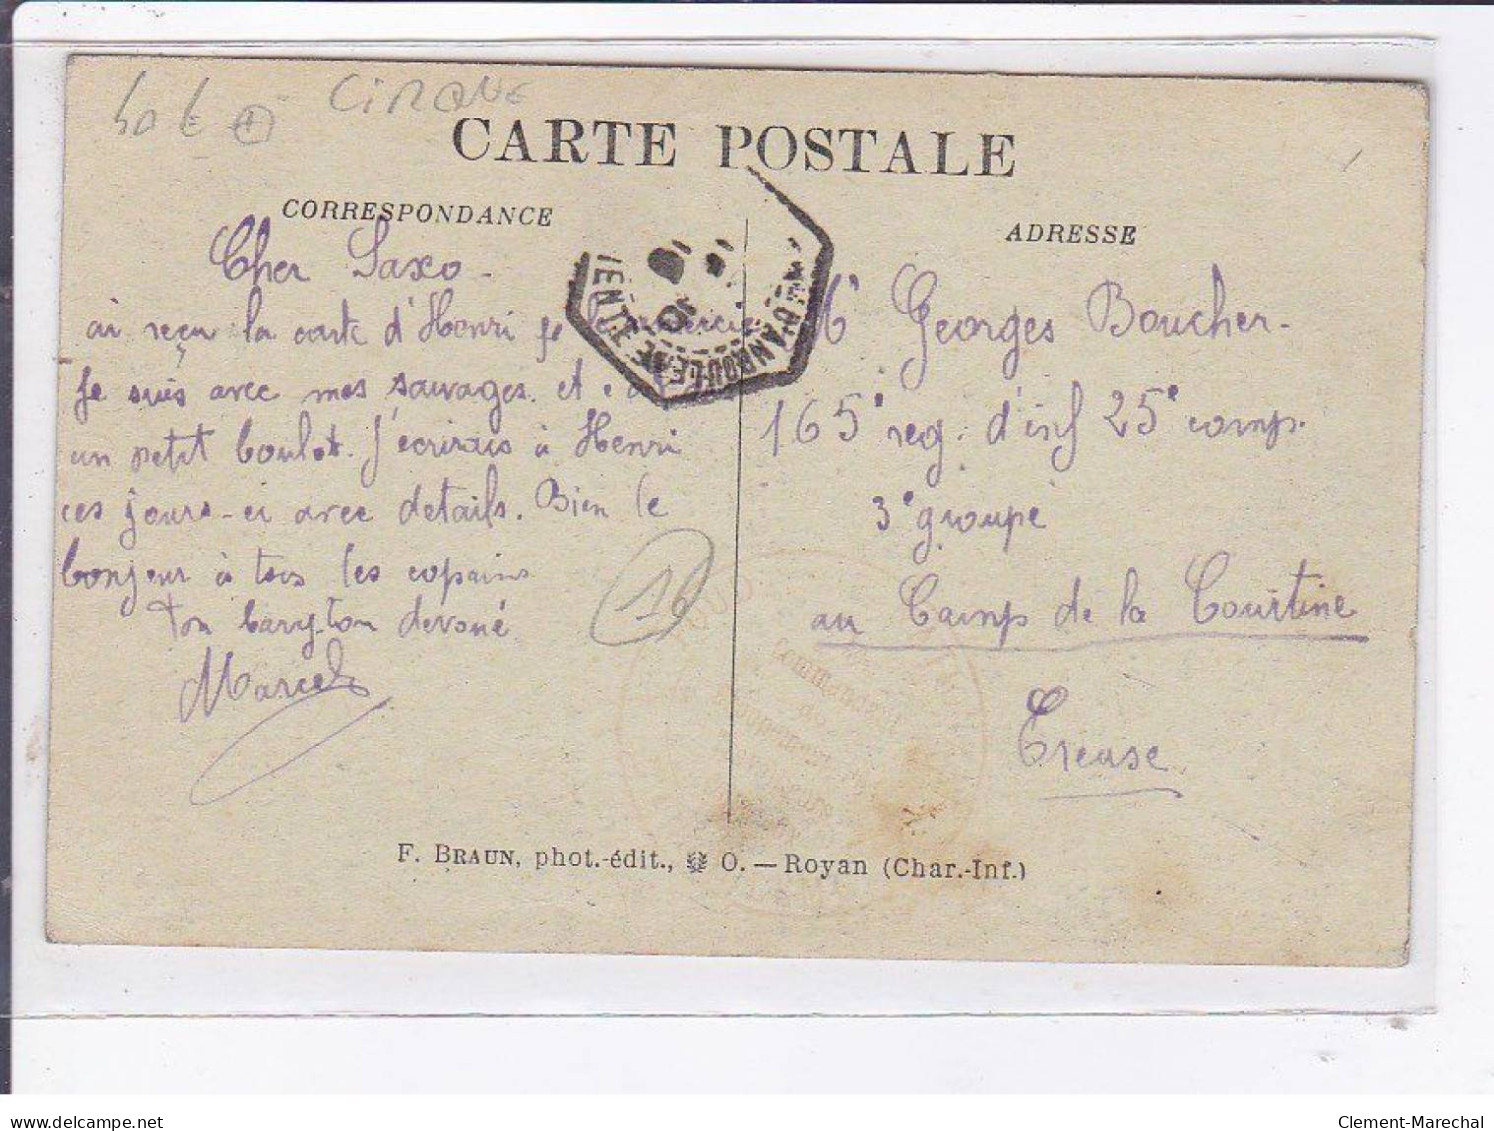 40 €
CIRQUE
CARTE POSTALE
CORRESPONDANCE
ADRESSE
Cher Saxo -
ai reçu la carte d'Henri je remercie
Je suis avec mes sauvages. et
un petit boulot. J'écrirais à Henri
ces jours-ci avec details. Bien le
bonjour à tous les copains
Ton baryton devoué
Marcel
10
Mr Georges Boucher-
165e reg. d'inf 25e comp.
3e groupe
au Camp de la Courtine
Creuse
F. BRAUN, phot.-édit., O. — Royan (Char.-Inf.)
delcampe.net
Clement-Marechal